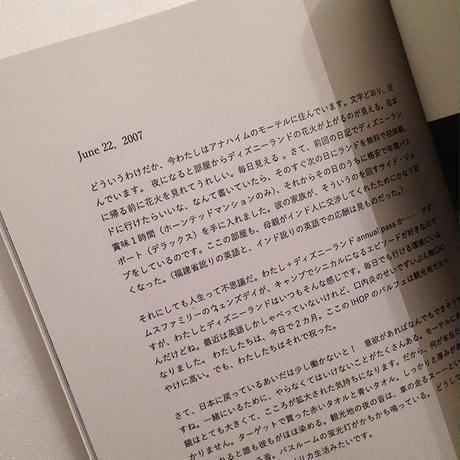 June 22, 2007
どういうわけだか、今わたしはアナハイムのモーテルに住んでいます。文字どおり、住
んでいます。夜になると部屋からディズニーランドの花火が上がるのが見える。日本
に帰る前に花火を見れてうれしい。毎日見える。さて、前回の日記でディズニーラン
ドに行けたらいいな、なんて書いていたら、そのすぐ次の日にランドを無料で初体験、
賞味1時間（ホーンテッドマンションのみ）、それからその日のうちに格安で年間パス
ポート（デラックス）を手に入れました。彼の家族が、そういうのを回すサイド・ジョ
ブをしているのです。ここの部屋も、母親がインド人に交渉してくれたためにかなり安
くなった。（福建省訛りの英語と、インド訛りの英語での応酬は見ものだった。）
それにしても人生って不思議だ。わたし＋ディズニーランド annual pass か……　アダ
ムスファミリーのウェンズデイが、キャンプでシニカルになるエピソードが好きなので
すが、わたしとディズニーランドはいつもそんな感じです。毎日でも行ける環境にいる
んだけどね。最近は英語しかしゃべっていないけれど、口内炎のせいでずいぶん無口に
なりました。わたしたちは、今日で2カ月。ここの IHOP のパルフェは観光地だから
やけに高い。でも、わたしたちはそれで祝った。
さて、日本に戻っているあいだは少し働かないと！　意欲があればなんでもできそう
すね。一緒にいるために、やらなくてはいけないことがたくさんある。モーテルに
鏡はとても大きくて、こころが拡大された気持ちになります。だから、何が本当
かりません。ターゲットで買った赤いタオルと青いタオル。しっかりと厚みが
れると誰も彼もがほほ染める。観光地の夜の音は、車の走るスーーとい
る音。バスルームの蛍光灯がかちかち鳴っている。どうして
リカ生活みたいです。